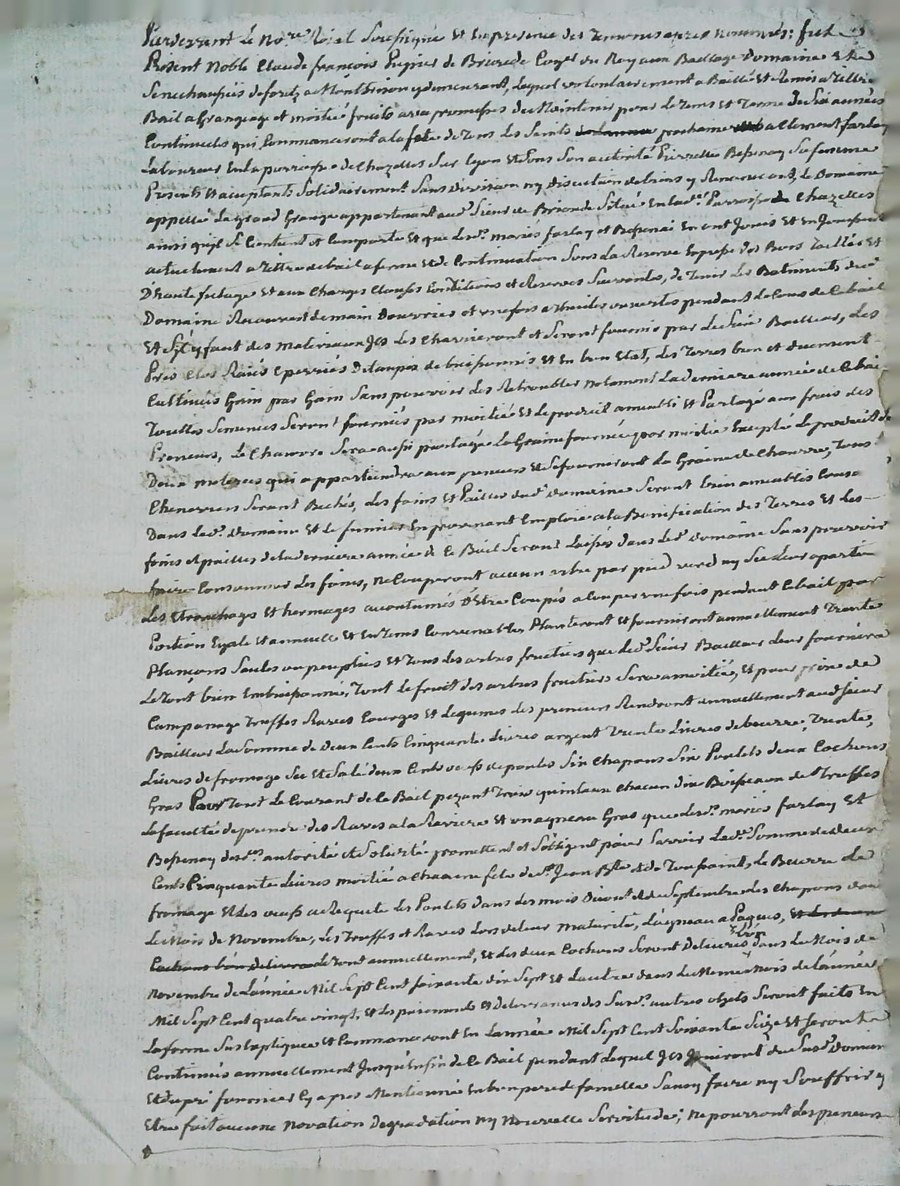 Pardevant Le No.re Roial Soussigné Et En presence des Temoins apres nommés: fut
Present Noble Claude françois Pugnes de Brioude Ecuyer du Roy aux Bailliage Domaine Et
Senechaussée de forêz a Montbrison y demeurant, Lequel volontairement a Baillé et Remis a Tittre
Bail a Grangeage et moitié fruits avec promesses de Maintenir pour le tems et Terme de Six années
Continuelles qui Commanceront a la fete de Tous Les Saints prochaine a Clement farlay
Laboureur En la parroisse de Chazelles Sur Lyon Et Sous Son autorité Pierrette Bessenay Sa femme
Presents Et aceptants Solidairement Sans division ny discution de biens y Renoncant, Le Domaine
appellé La Grand Grange appartenant aud.t Sieur de Brioude Situé En lad.e Parroisse de Chazelles
ainsi qu'il Se Contient et Comporte Et que Lesd. mariés farlay et Bessenai En ont Jouis Et En Jouissent
actuellement a Tittre de bail a ferme Et de Continuation Sous La Reserve Expresse des Bois Taillés Et
D'haute futaye Et aux Charges Clauses Conditions et Reserves Suivantes, de Tenir Les Batiments dud.
Domaine Recouvert de main d'ouvriers et une fois a thuilles ouvertes pendant Le Cours de Ce bail
Et S'il y faut des materiaux Ils Les Charrieront et Seront fournis par Le Sieur Bailleur, Les
Prés Clos Raiés Eperriés Detaupés debuissonnés Et En bon Etat, Les Terres bien et duement
Cultivées Grain par Grain Sans pouvoir Les Retroubler notament La derniere année de Ce bail
Touttes Semences Seront fournies par moitié Et Le produit ameubli Et Partagé aux frais des
Preneurs, Le Chanvre Sera aussi partagé La Graine fournie par moitié Excepté Le produit de
Deux meterées qui appartiendra aux preneurs Et Se fourniront La Graine de Chanvre, Tous
Chenevriers Seront Bechés, Les foins Et Pailles dud. domaine Seront bien ameublis
Dans Led. domaine Et Le fumier En provenant Emploié a la Bonification des Terres Et Les
foins et pailles de la derniere année de Ce Bail Seront Laissés dans Led. domaine Sans pouvoir
faire Consommer Les foins, ne Couperont aucun arbre par pied verd ny Sec Leur apartien
Les Etronchages Et hermages acoutumés D'Etre Coupés a Couper une fois pendant Ce bail par
Portion Egale Et annuelle Et En Tems Convenables Planteront et fourniront annuellement Trante
Plançons Saules ou peupliers Et Tous Les arbres fruitiers que Led. Sieur Bailleur Leur fournira
Le Tout bien Embuissonné, Tout Le fruit des arbres fruitiers Sera a moitié, Et pour prix de
Campanage Truffes Raves Courges Et Legumes Les preneurs Rendront annuellement aud. Sieur
Bailleur La Somme de deux Cents Cinquante Livres argent Trente Livres de beurre, Trente,
Livres de fromage Sec Et Salé deux Cents oeufs de poules Six Chapons Six Poulets deux Cochons
Gras Pour Tout Le Courant de Ce Bail pezant Trois quintaux Chacun dix Boisseaux de Truffes
La faculté de prendre des Raves a la Raviere Et un agneau Gras que Lesd. mariés farlay Et
Bessenay desd.es autorité Et Solidité promettent et S'obligent païer Savoir Lad. Somme de deux
Cents Cinquante Livres moitié a Chacune fete de S.t Jean Bte et de Toussaint, Le Beurre Le
fromage Et Les oeufs a Requete Les Poulets dans Les mois d'aout Et de Septembre Les Chapons dans
Le Mois de Novembre, Les Truffes et Raves Lors de Leur maturité, L'agneau a Paques,
Le Tout annuellement, Et Les deux Cochons Seront Delivrés L'un dans Le Mois de
Novembre de L'année Mil Sept Cent Soixante dix Sept Et L'autre dans Le Meme Mois de L'année
Mil Sept Cent quatre vingt, Et Les païements Et delivrances des Susd. autres objets Seront faits En
La forme Sus Expliquée Et Commanceront En L'année Mil Sept Cent Soixante Seize Et Seront
Continués annuellement Jusqu'a fin de Ce Bail pendant Lequel Ils Jouiront du Susd. Domaine
Et du pré foncier Cy apres Mentionné En bon pere de famille Sans y faire ny Souffrir
Etre fait aucune Novation Degradation ny Nouvelle Servitude; Ne pourront Les preneurs